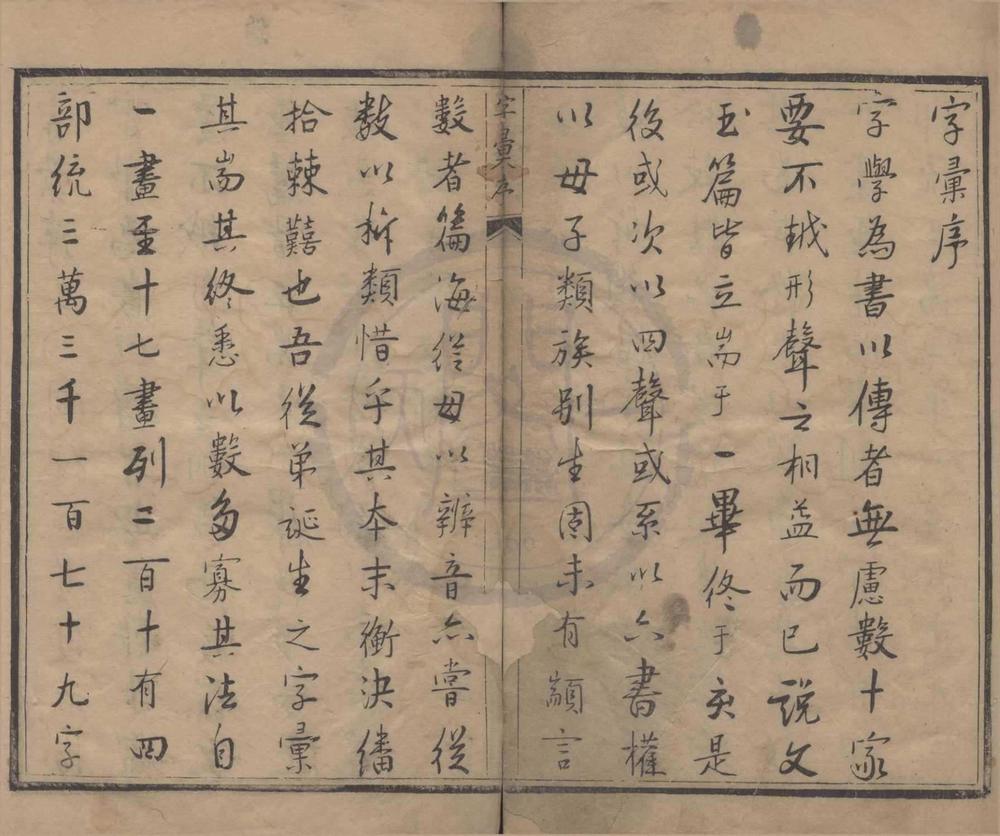 字彙序
字學為書以傳者無慮數十家
要不越形聲之相益而已說文
玉篇皆立耑于一畢終于亥是
後或次以四聲或系以六書權
以母子類族別生固未有顓言
字彙序
數者篇海從母以辨音亦嘗從
數以析類惜乎其本末衡決繙
拾棘囏也吾從弟誕生之字彙
其耑其終悉以數多寡其法自
一畫至十七畫列二百十有四
部統三萬三千一百七十九字